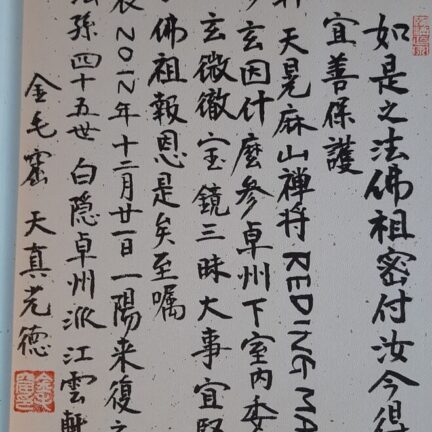 如是之法佛祖密付汝今得
宜善保護
天晃麻山禅将 REDING MA
玄因什麼參卓州下室内委
玄微徹宝鏡三昧大事宜
佛祖報恩是矣至嘱
2012年十二月廿一日一陽来復之
孫四十五世 白隐卓州派 江雲軒
金毛窟 天真光德